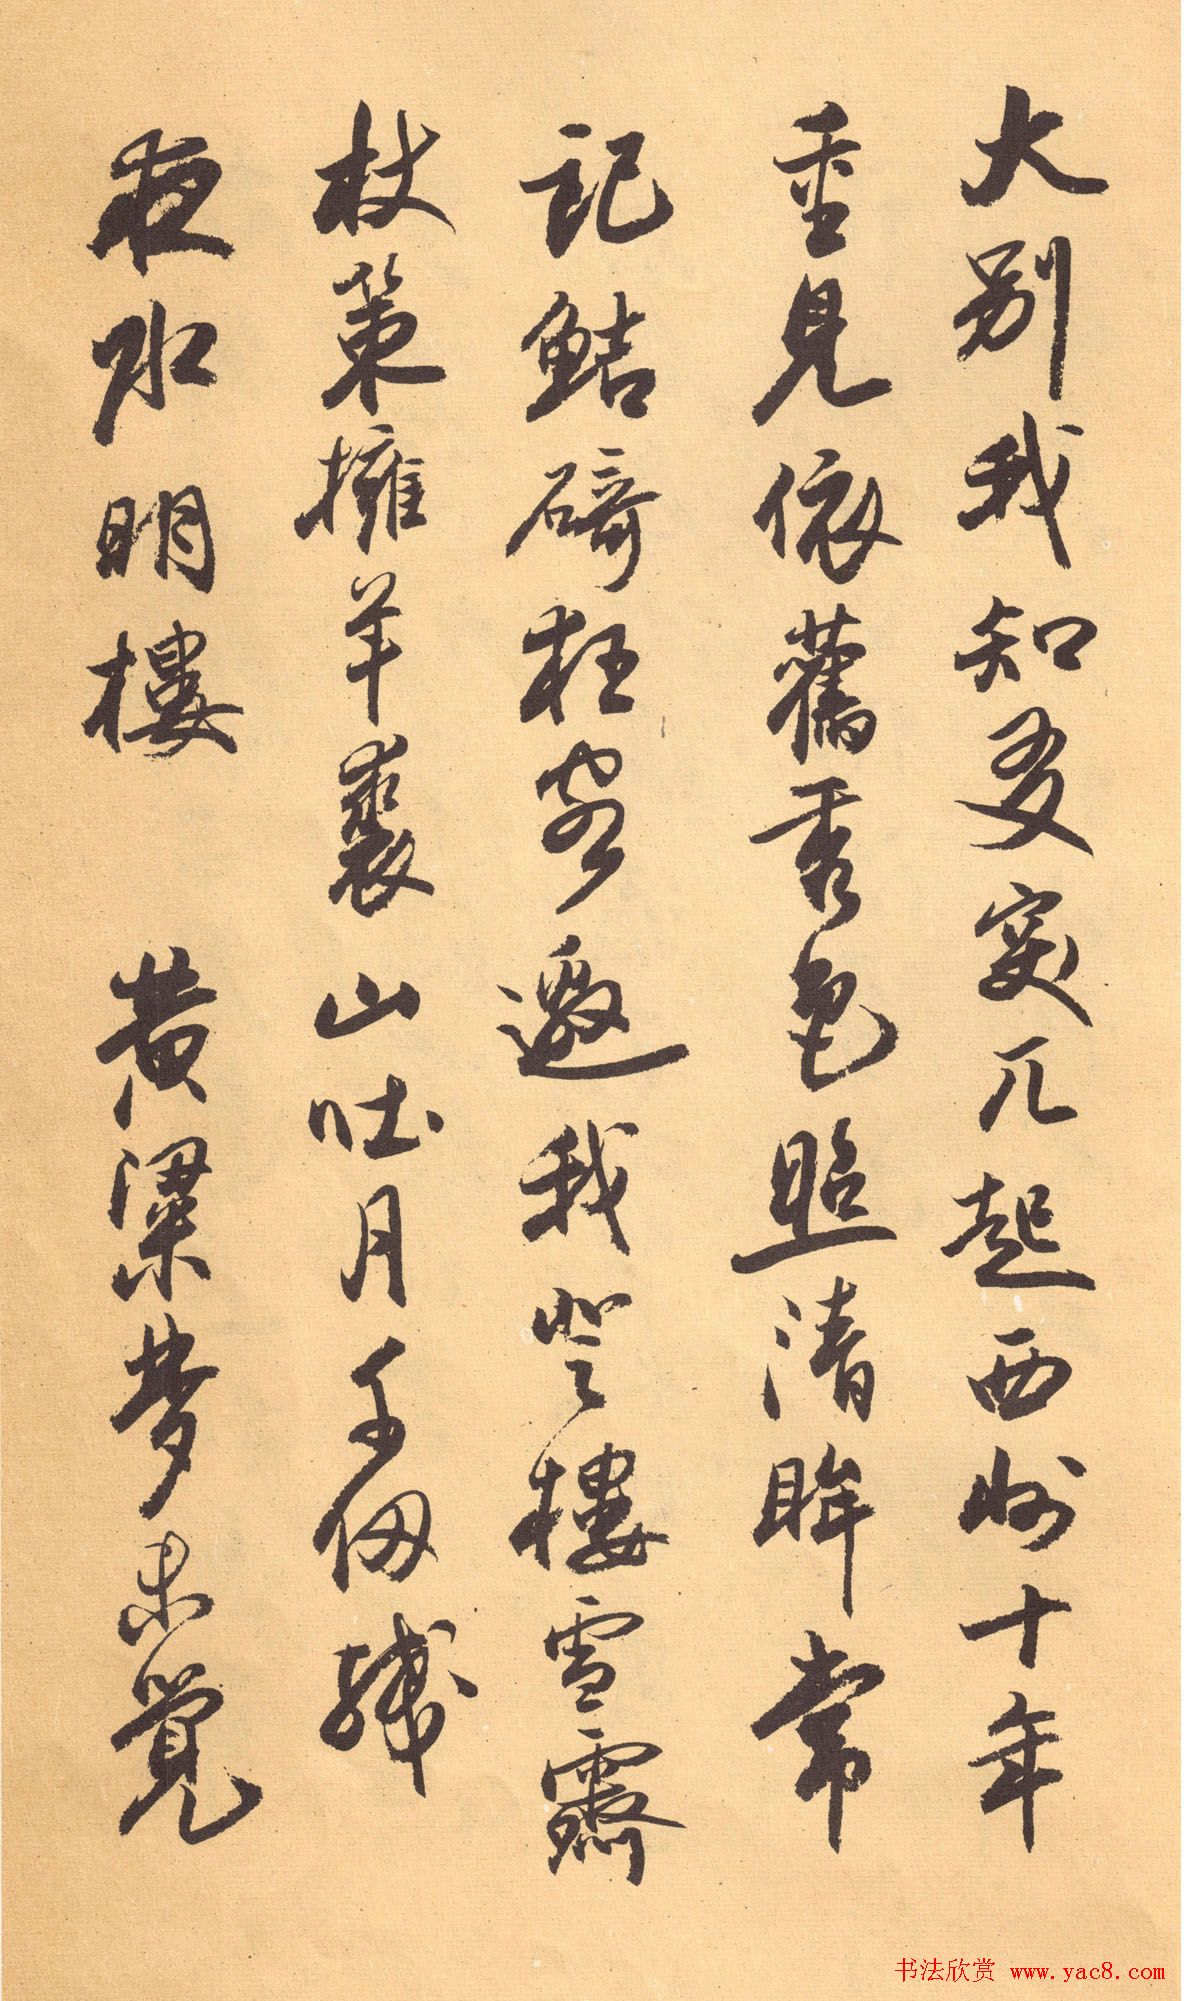 大別我知友突兀起西州十年
重見依舊秀色照清眸常
記鮚碕狂客邀我登樓雪霽
杖策擁羊裘山吐月千仞殘
夜水明樓 黄粱夢未覺
书法欣赏 www.yac8.com